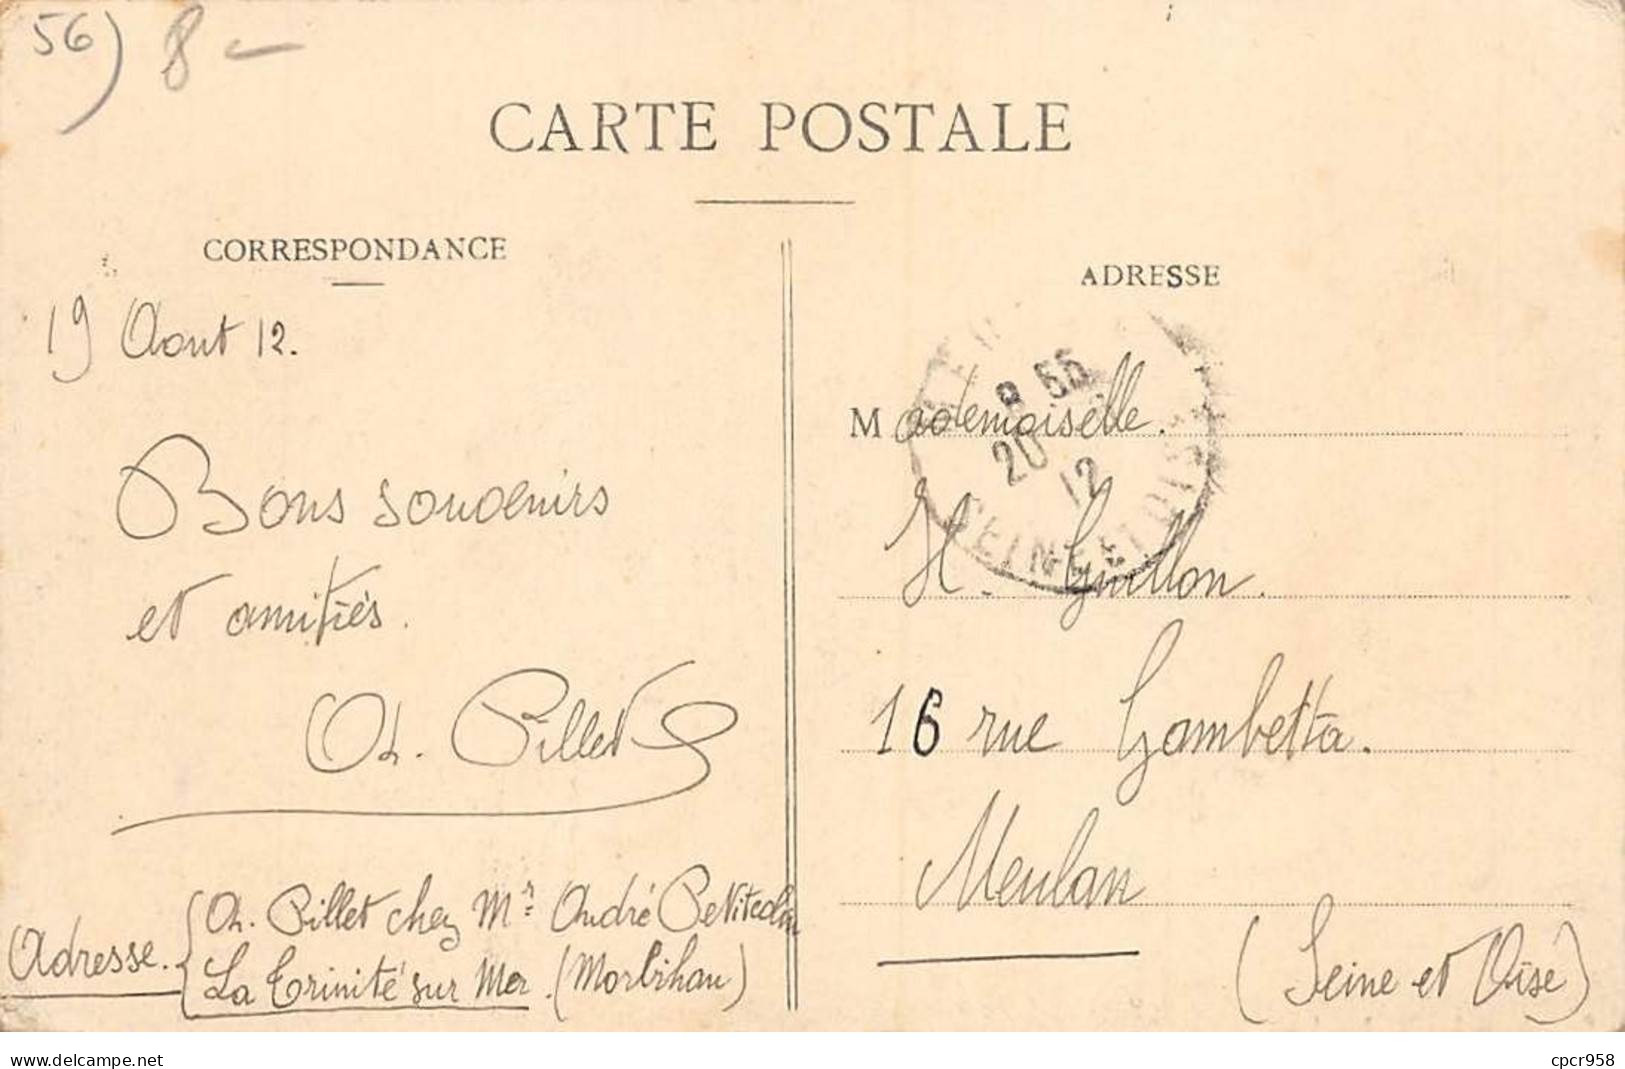 56) 8 -
CARTE POSTALE
CORRESPONDANCE
19 Aout 12.
Bons souvenirs
et amitiés.
Ch. Pillet
Adresse.
Ch. Pillet chez Mr André Petitcolin
La Trinité sur Mer. (Morbihan)
ADRESSE
8 55
20
12
SEINE ET OISE
Mademoiselle.
H. Guillon.
16 rue Gambetta.
Meulan
(Seine et Oise)
delcampe.net
cpcr958